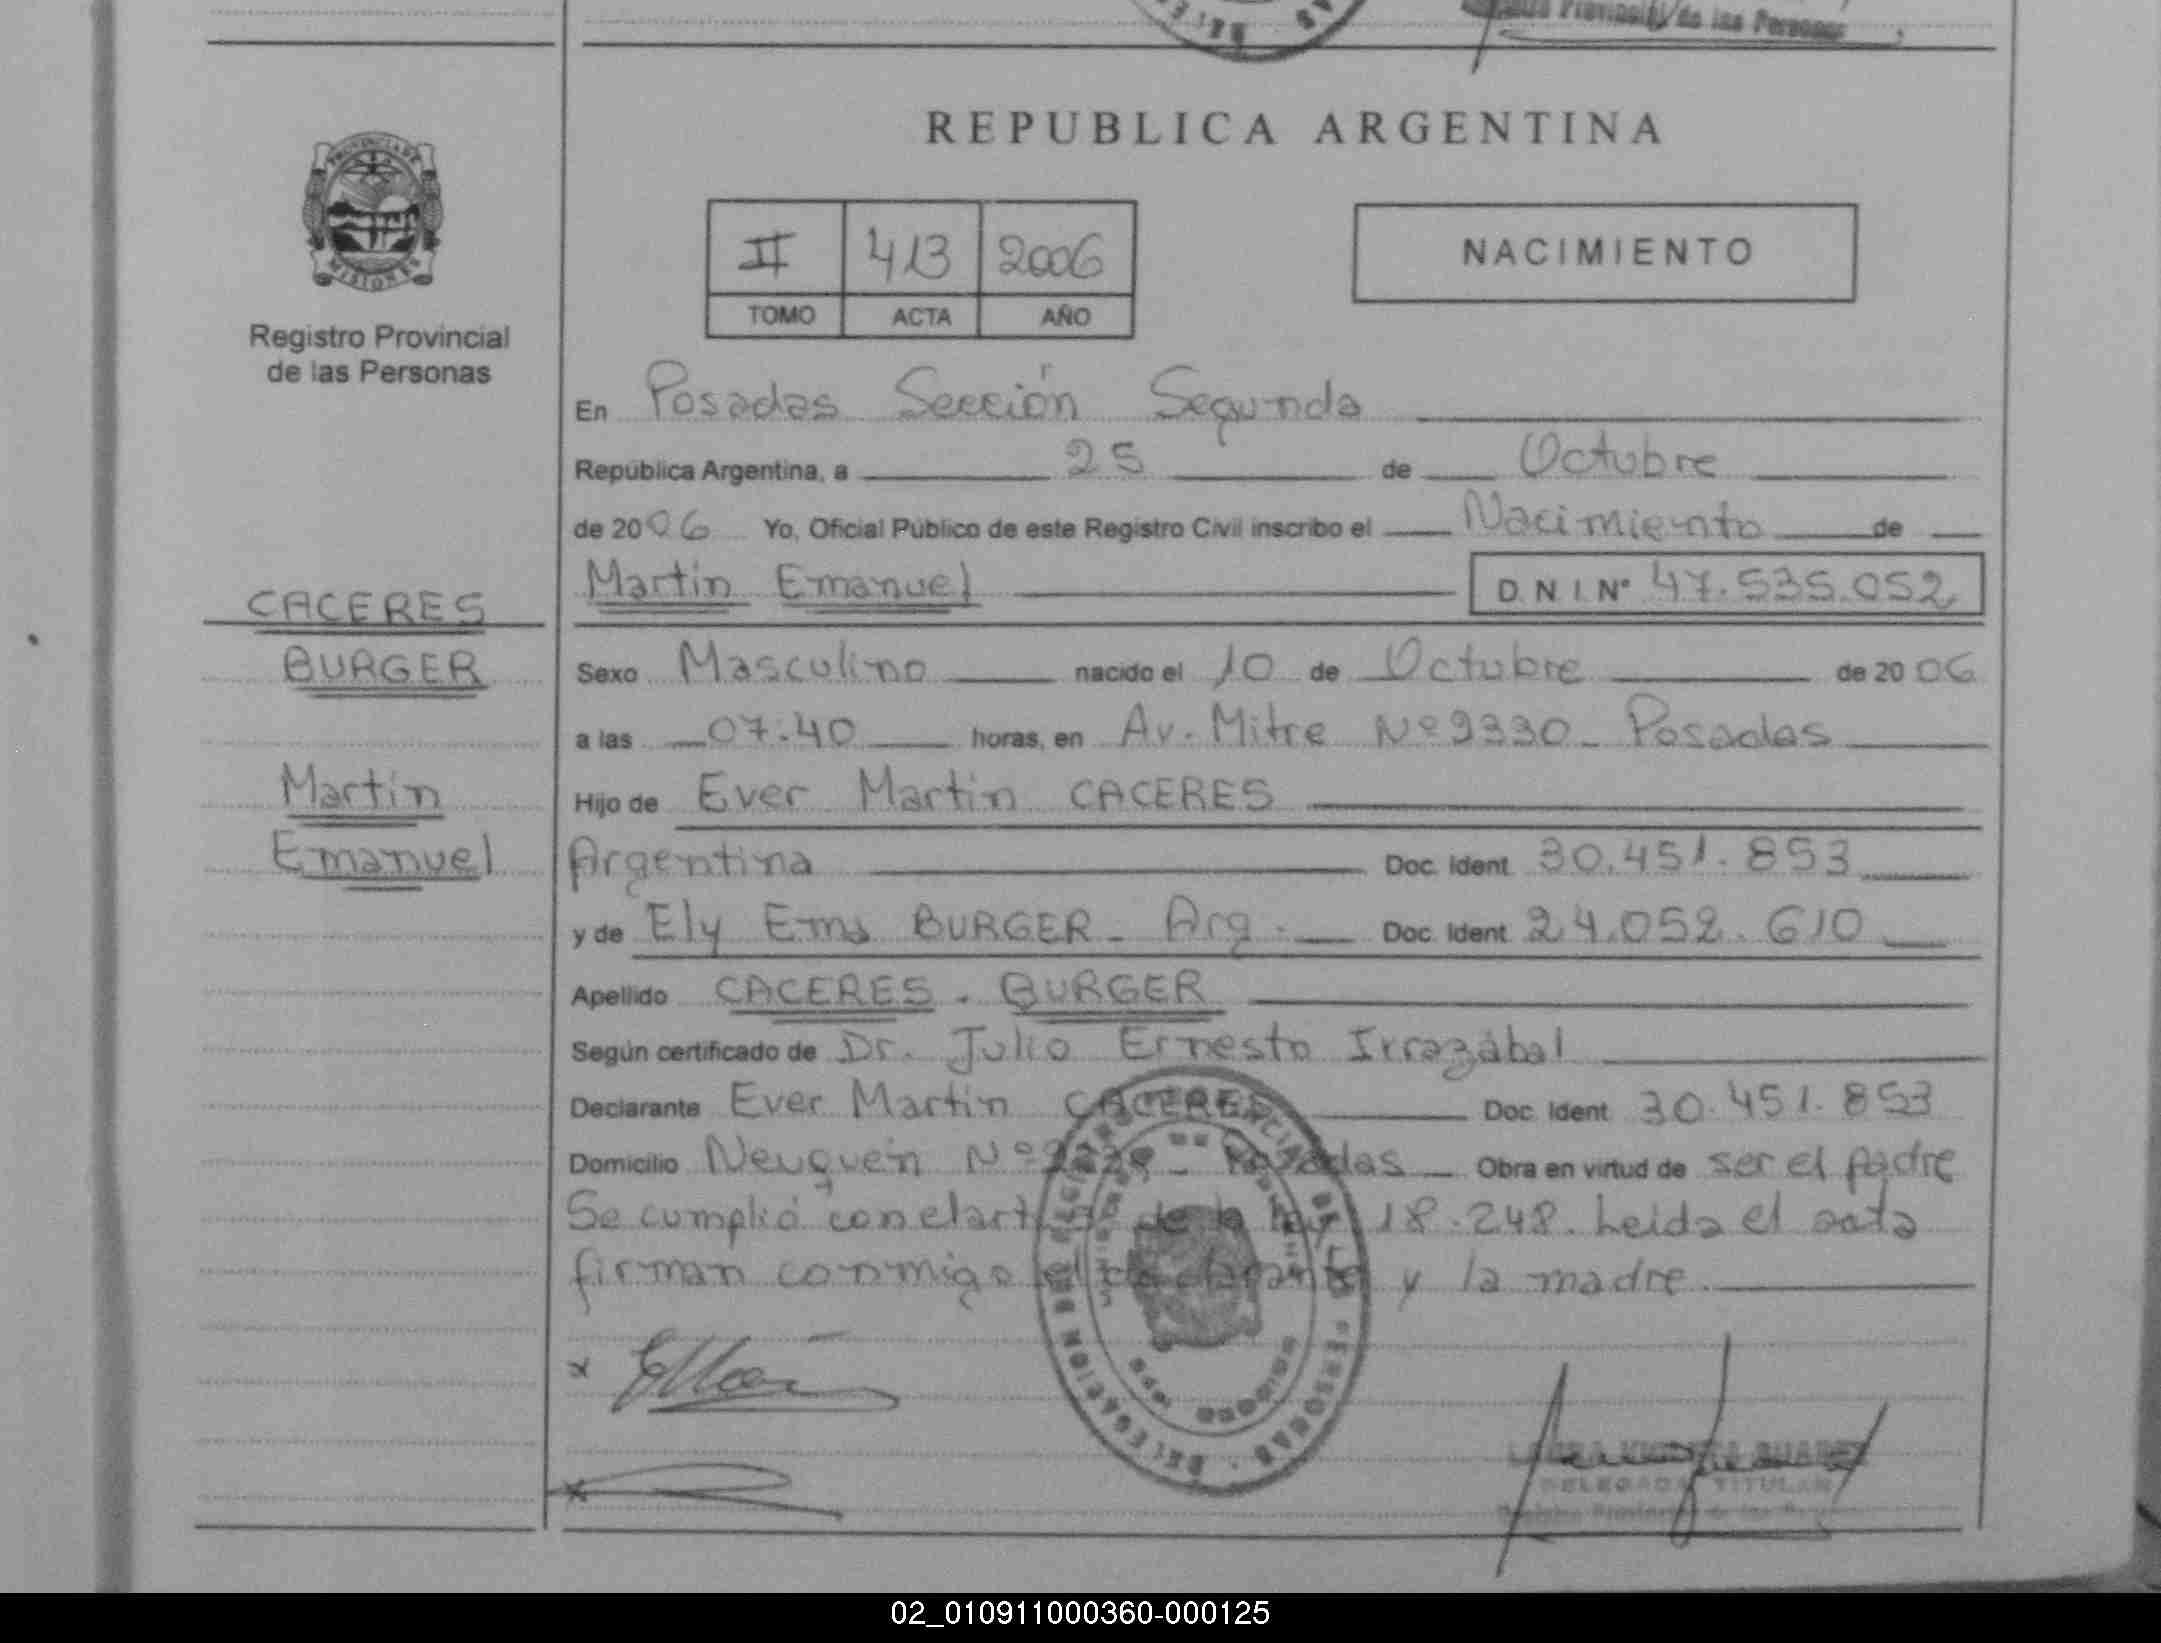 Provincial de las Personas
REPUBLICA ARGENTINA
PROVINCIA DE
MISIONES
Registro Provincial
de las Personas
II 413 2006
TOMO ACTA AÑO
NACIMIENTO
En Posadas Sección Segunda
República Argentina, a 25 de Octubre
de 2006 Yo, Oficial Público de este Registro Civil inscribo el Nacimiento de
Martin Emanuel D.N.I. Nº 47.535.052
CACERES
BURGER
Martin
Emanuel
Sexo Masculino nacido el 10 de Octubre de 2006
a las 07:40 horas, en Av. Mitre Nº 2330 - Posadas
Hijo de Ever Martin CACERES
Argentina Doc. Ident. 30.451.853
y de Ely Ema BURGER - Arg. Doc. Ident. 24.052.610
Apellido CACERES - BURGER
Según certificado de Dr. Julio Ernesto Irrazábal
Declarante Ever Martin CACERES Doc. Ident. 30.451.853
Domicilio Neuquén Nº - Posadas - Obra en virtud de ser el padre
Se cumplió con el art de la ley 18.248. Leida el acta
firman conmigo el declarante y la madre.
DELEGADA TITULAR
02_010911000360-000125